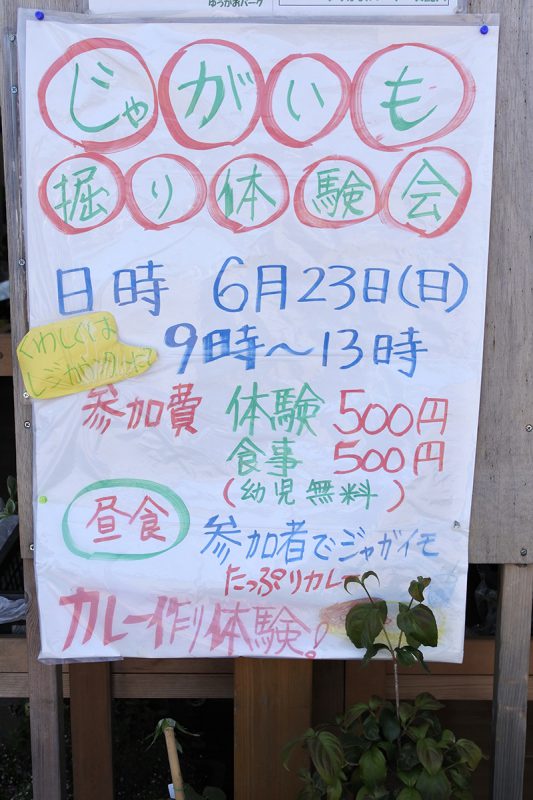 ゆうがおパーク
じゃがいも
掘り体験会
日時 6月23日(日)
9時〜13時
くわしくは
参加費 体験 500円
食事 500円
(幼児無料)
昼食
参加者でジャガイモ
たっぷりカレー
カレー作り体験!